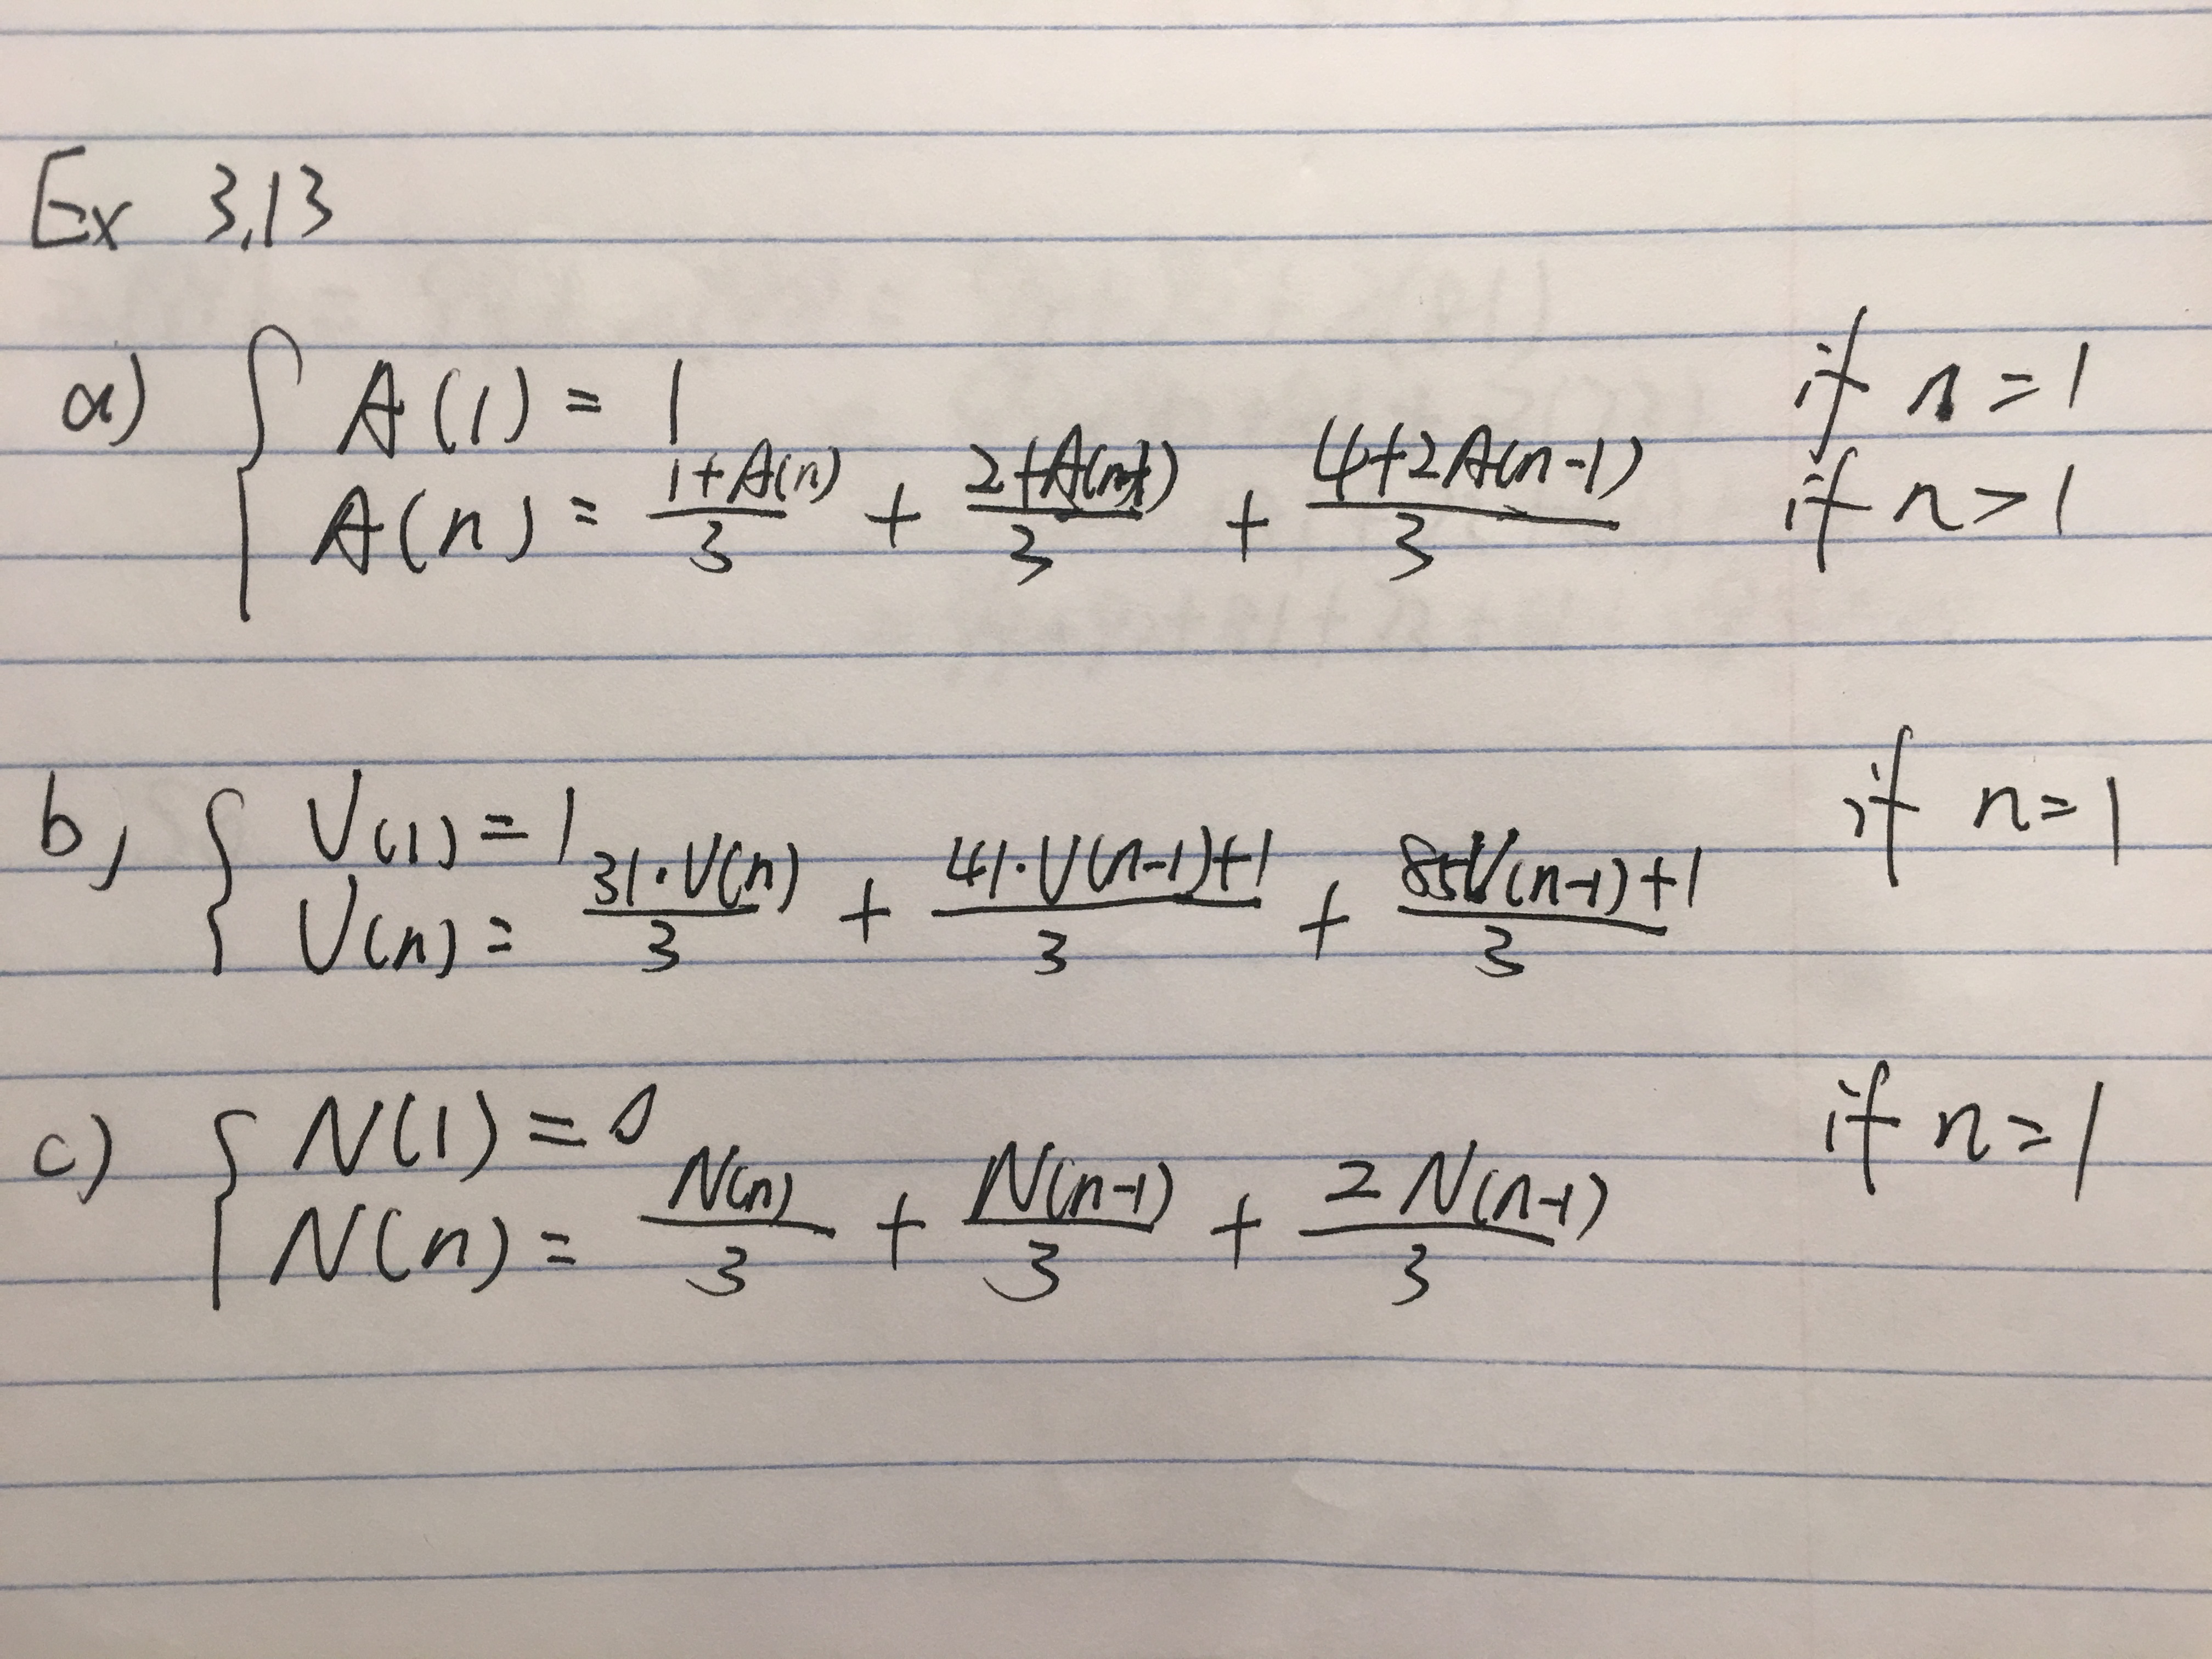 Ex 3.13
a) { A(1) = 1 if n = 1
A(n) = 1+A(n)/3 + 2+A(n-1)/3 + 4+2A(n-1)/3 if n > 1
b) { U(1) = 1 if n = 1
U(n) = 31·U(n)/3 + 41·U(n-1)+1/3 + 8+U(n-1)+1/3
c) { N(1) = 0 if n = 1
N(n) = N(n)/3 + N(n-1)/3 + 2N(n-1)/3